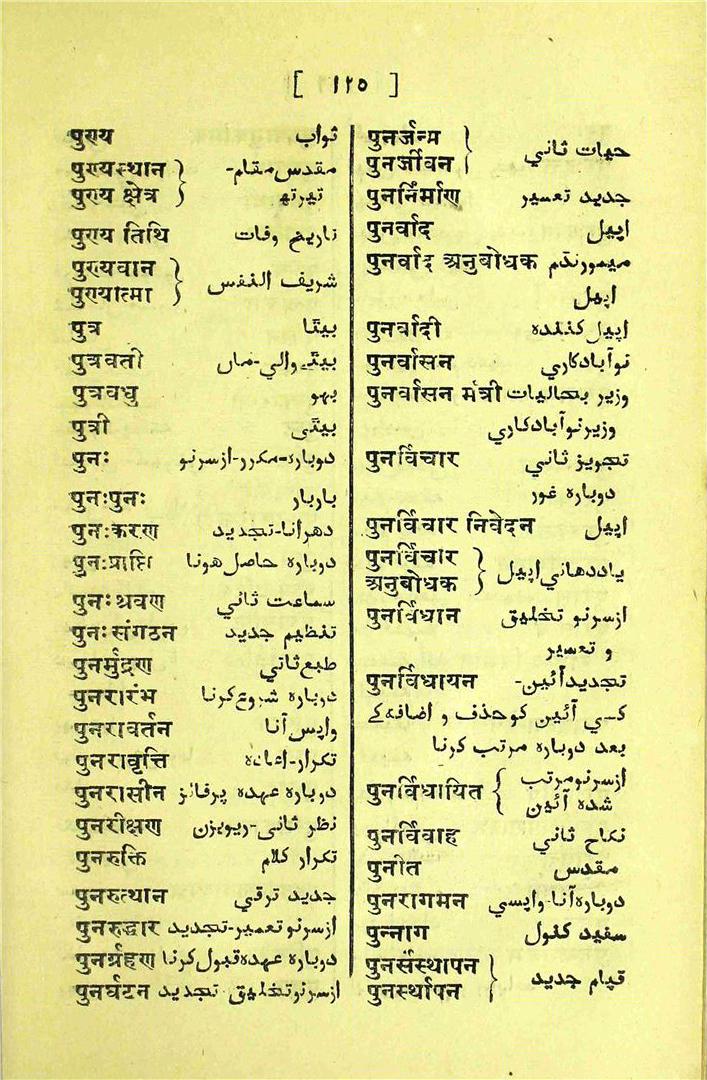 [ ۱۲۵ ]
पुण्य ثواب
पुण्यस्थान } مقدس مقام-
पुण्य क्षेत्र } تیرتھ
पुण्य तिथि تاریخ وفات
पुण्यवान }
पुण्यात्मा } شریف النفس
पुत्र بیٹا
पुत्रवती بیٹے والی-ماں
पुत्रवधु بہو
पुत्री بیٹی
पुनः دوبارہ-مکرر-ازسرنو
पुनःपुनः باربار
पुनःकरण دھرانا-تجدید
पुनःप्राप्ति دوبارہ حاصل ہونا
पुनःश्रवण سماعت ثانی
पुनःसंगठन تنظیم جدید
पुनर्मुद्रण طبع ثانی
पुनरारंभ دوبارہ شروع کرنا
पुनरावर्तन واپس آنا
पुनरावृत्ति تکرار-اعادہ
पुनरासीन دوبارہ عہدہ پرفائز
पुनरीक्षण نظر ثانی-ریویزن
पुनरुक्ति تکرار کلام
पुनरुत्थान جدید ترقی
पुनरुद्धार ازسرنو تعمیر-تجدید
पुनर्ग्रहण دوبارہ عہدہ قبول کرنا
पुनर्घटन ازسرنو تخلیق تجدید
पुनर्जन्म }
पुनर्जीवन } حیات ثانی
पुनर्निर्माण جدید تعمیر
पुनर्वाद اپیل
पुनर्वाद अनुबोधक میمورنڈم
اپیل
पुनर्वादी اپیل کنندہ
पुनर्वासन نوآبادکاری
पुनर्वासन मंत्री وزیر بحالیات
وزیر نوآبادکاری
पुनर्विचार تجویز ثانی
دوبارہ غور
पुनर्विचार निवेदन اپیل
पुनर्विचार }
अनुबोधक } یاددھانی اپیل
पुनर्विधान ازسرنو تخلیق
و تعمیر
पुनर्विधायन تجدید آئین-
کسی آئین کو حذف و اضافہ کے
بعد دوبارہ مرتب کرنا
पुनर्विधायित { ازسرنو مرتب
شدہ آئین
पुनर्विवाह نکاح ثانی
पुनीत مقدس
पुनरागमन دوبارہ آنا-واپسی
पुन्नाग سفید کنول
पुनर्संस्थापन }
पुनर्स्थापन } قیام جدید